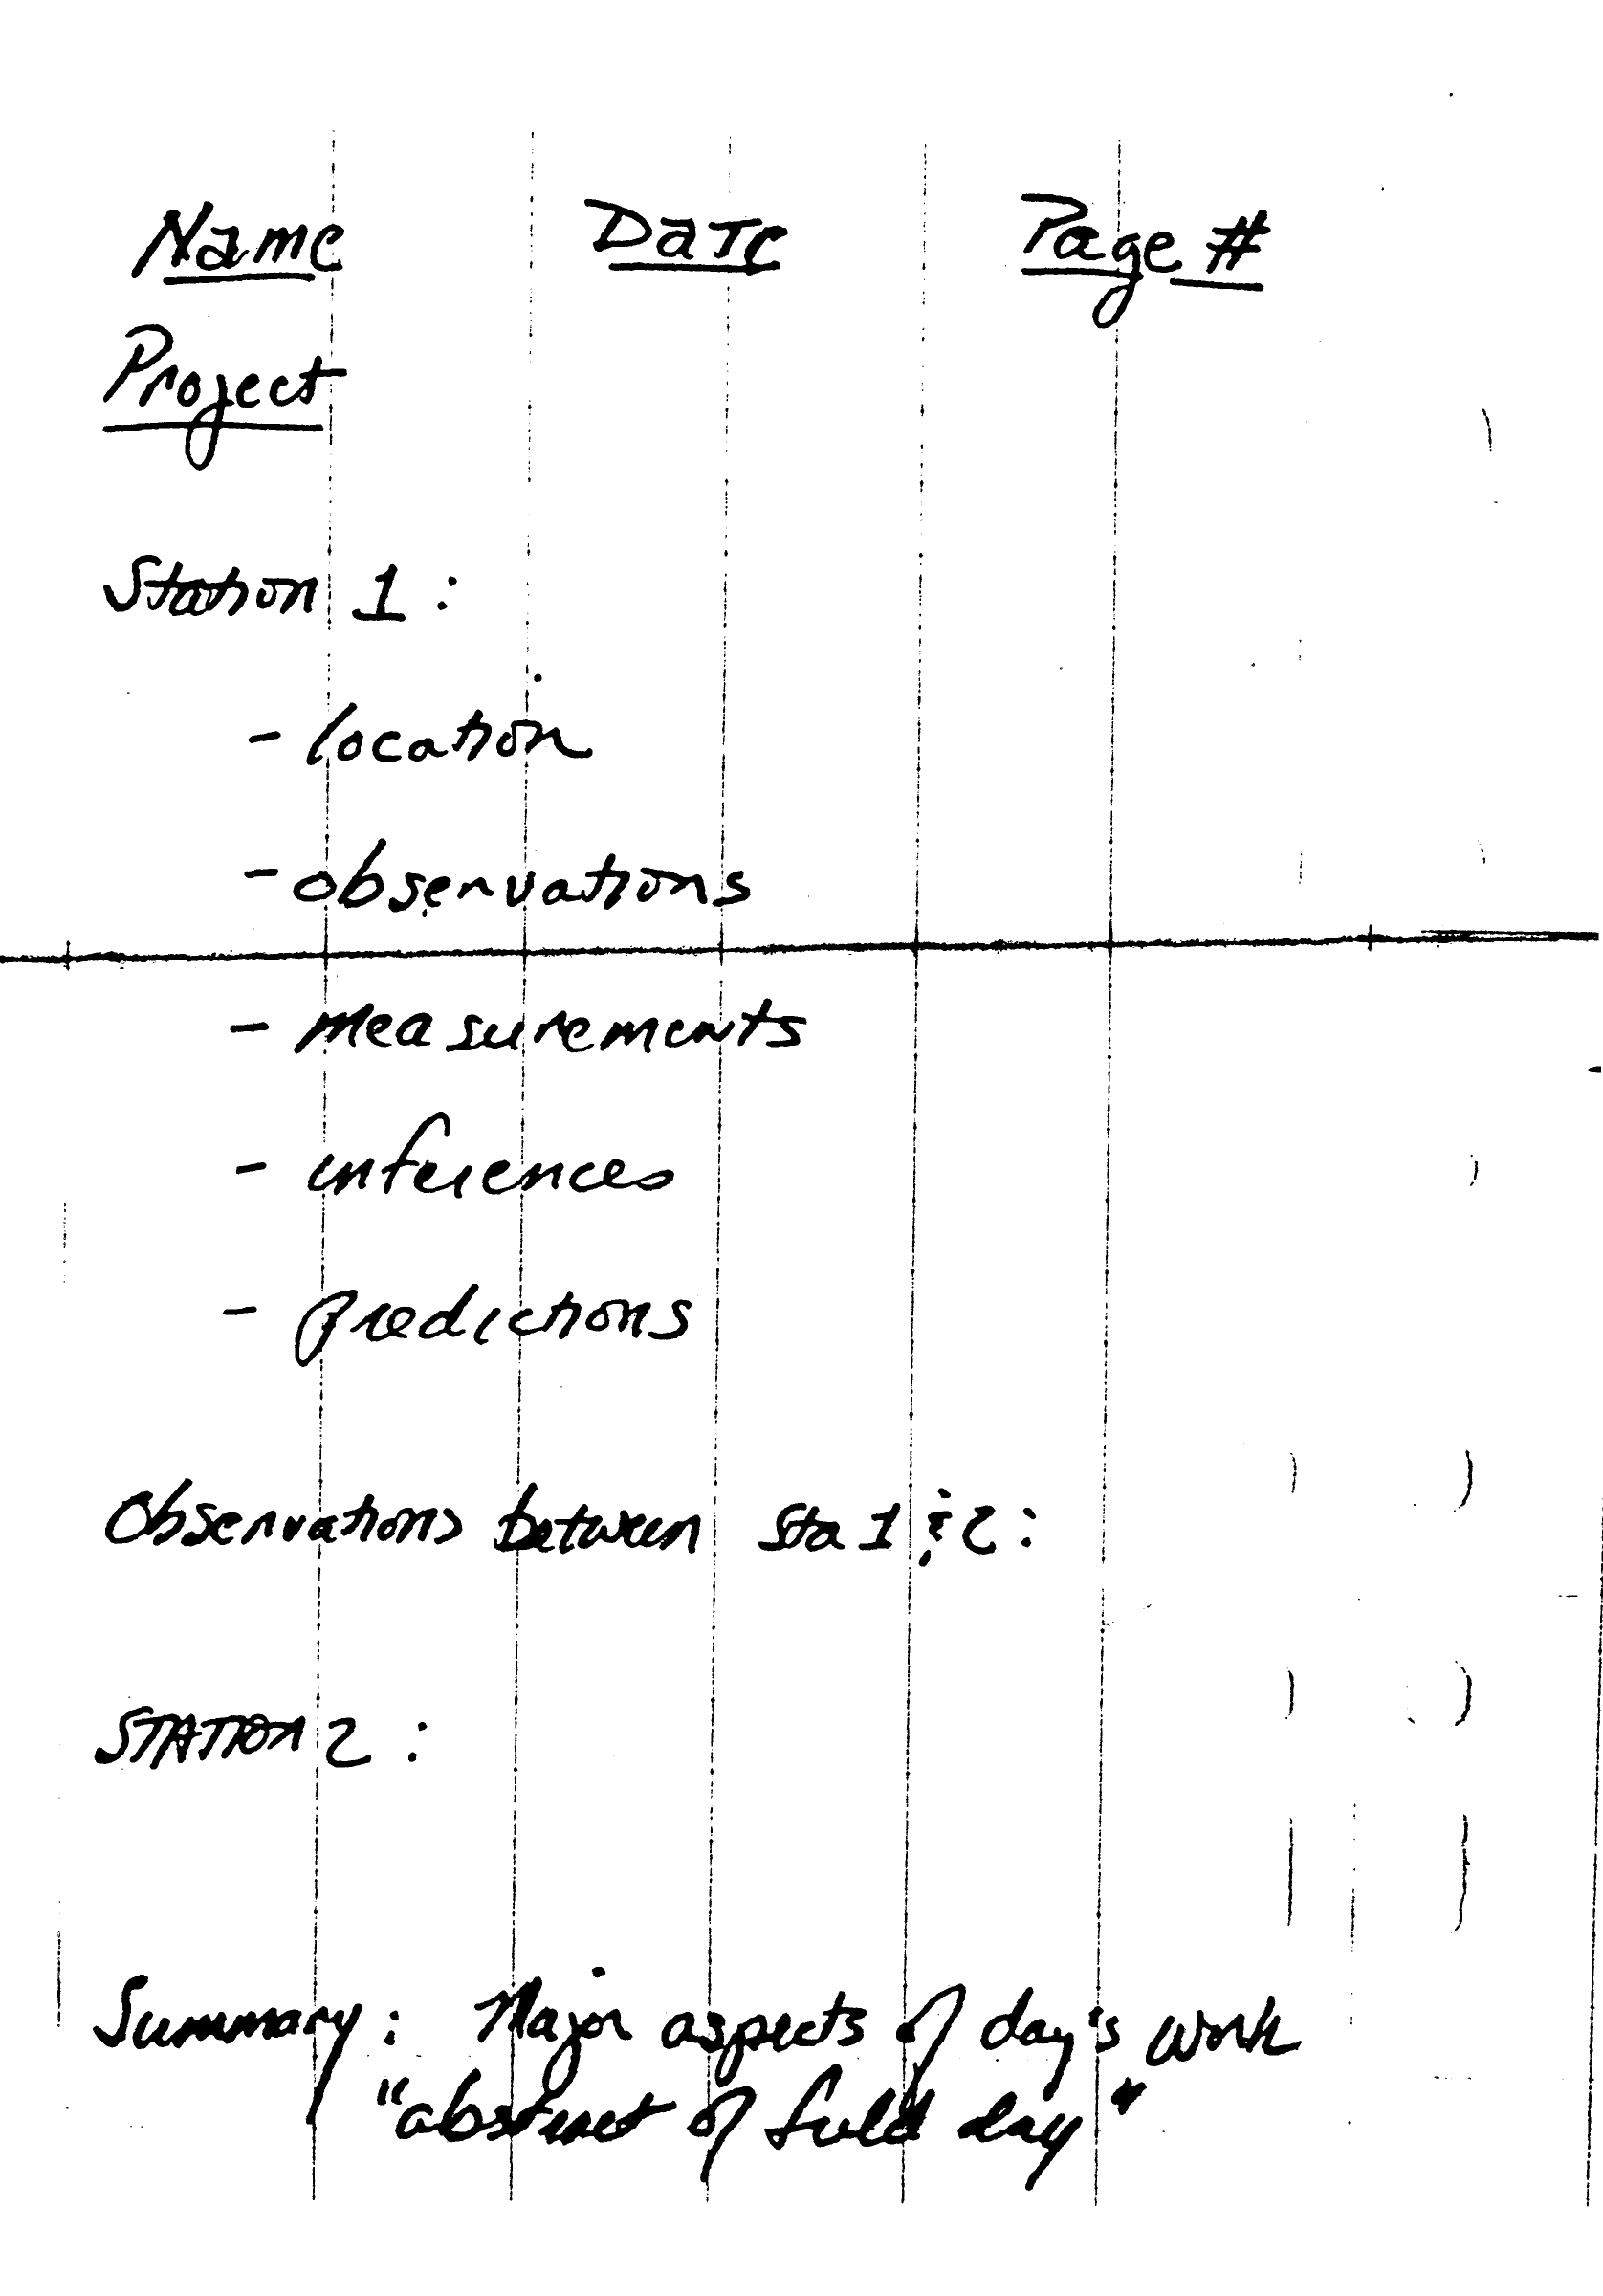 Name Date Page #
Project
Station 1 :
- location
- observations
- measurements
- inferences
- predictions
Observations between Sta 1 & 2 :
STATION 2 :
Summary : Major aspects of day's work
"abstract of field day"